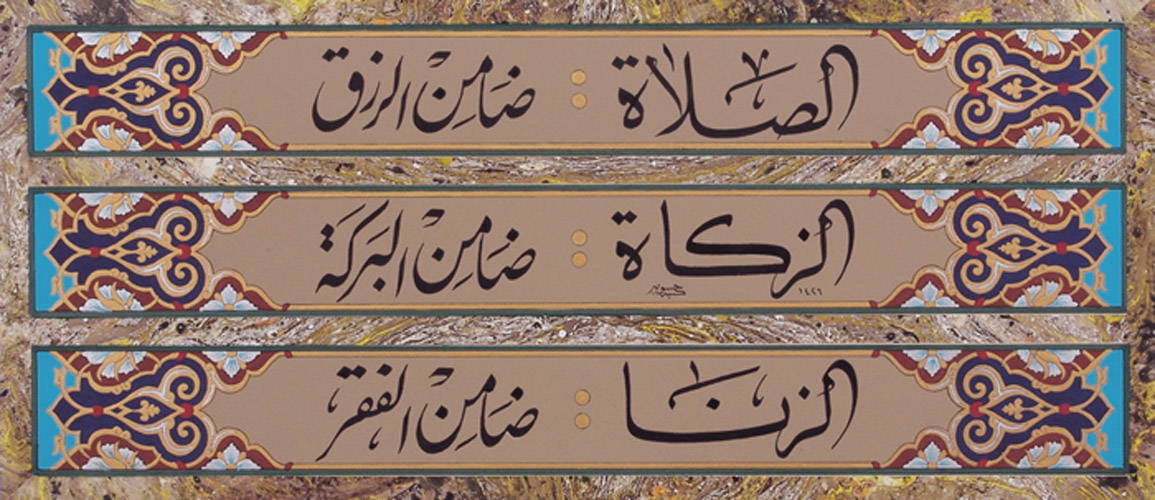 الصلاة : ضامن الرزق
الزكاة : ضامن البركة
١٤٢٦
الزنا : ضامن الفقر